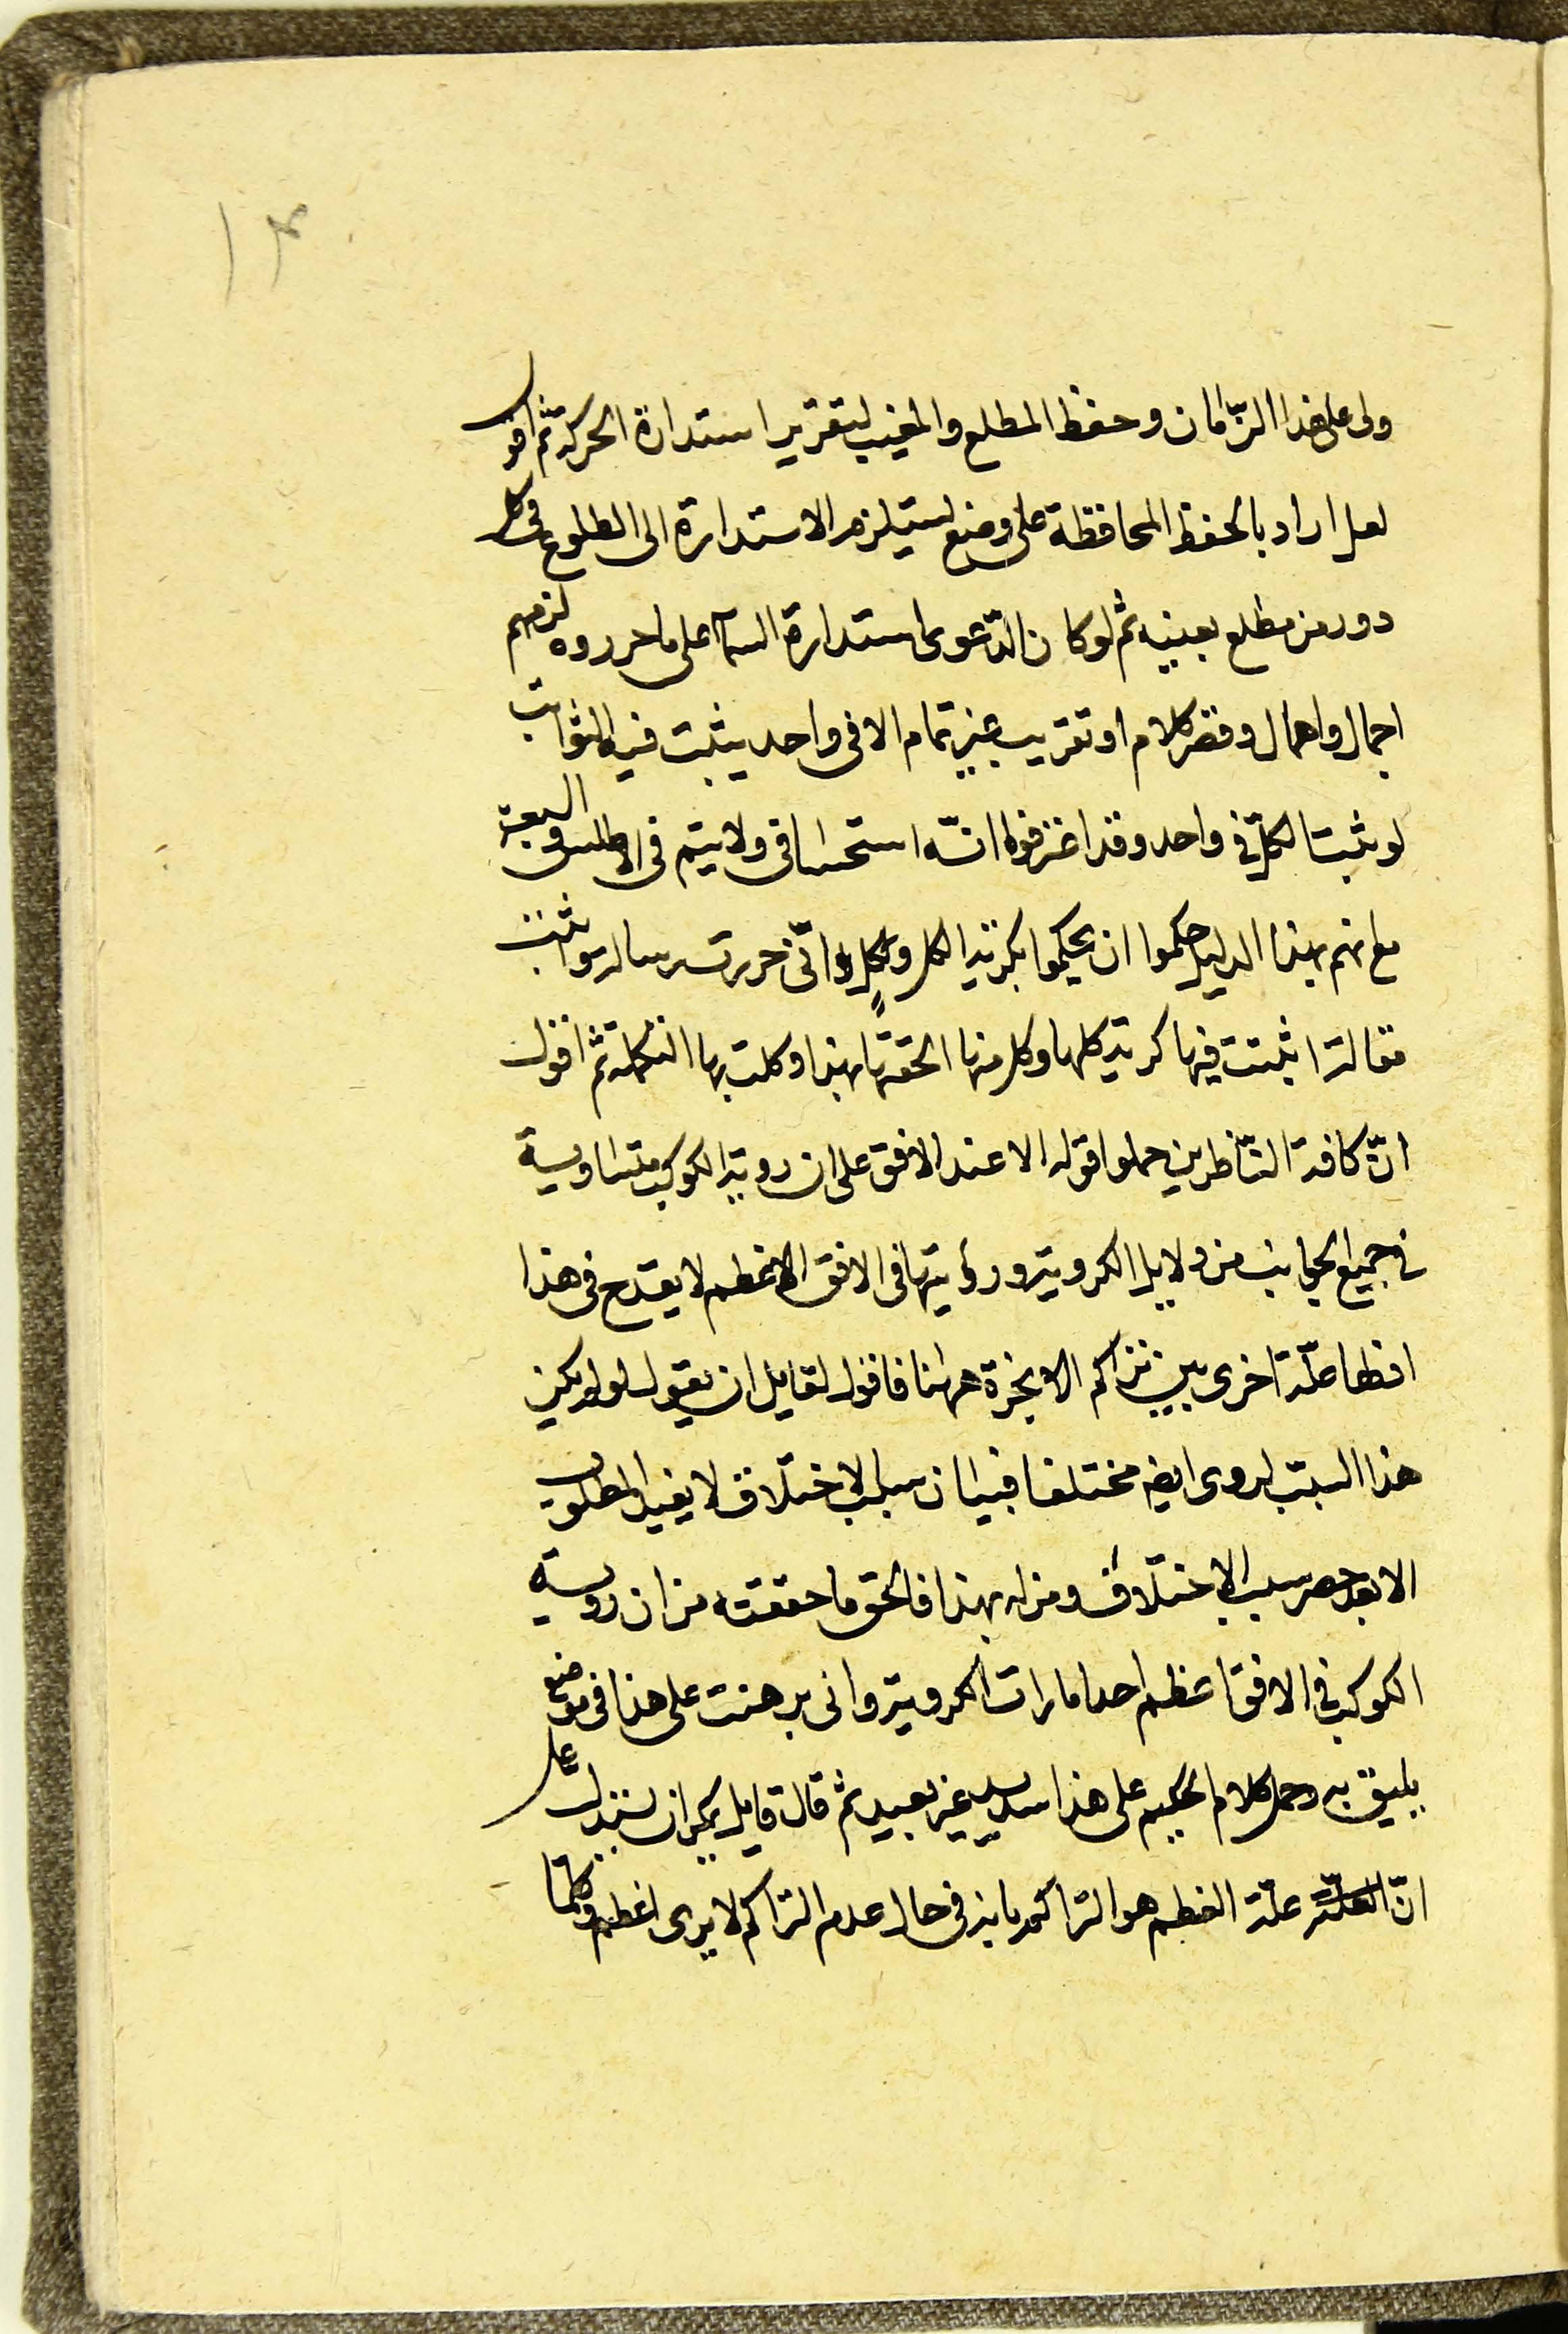 ١٣
ولى على هذا الزّمان وحفظ المطلع والمغيب لتقرير استدارة الحركة ثم اقول
لعل اراد بالحفظ المحافظة على وضع يستلزم الاستدارة الى الطلوع فى كل
دور من مطلع بعينه ثم لو كان الدّعوى استدارة السمآء على ما حرروه لزمهم
اجمال واهمال وقصر كلام او تقريب غير تمام الا فى واحد يثبت فيه الثوابت
لو ثبت الكلّ فى واحد وقد اعترفوا انّه استحسانى ولا يتم فى الاطلس والسبعة
مع انهم بهذا الدليل حكموا ان يحكموا بكريّة الكل وكلٍ وانّى حررت رسالة وثبت
مقالة اثبتت فيها كرية كلها وكل منها الحقتها بهذا وكلت بها التكملة ثم اقول
انّ كافة النّاظرين حملوا قوله الا عند الافق على ان روية الكوكب متساوية
فى جميع الجوانب من دلايل الكروية ورؤيتها فى الافق اعظم لا يقدح فى هذا
اذ لها علّة اخرى بين تراكم الابخرة ههنا فاقول لقايل ان يقول لو لم يكن
هذا السبب لروى ايضا مختلفا فبيان سبب الاختلاف لا يفيد المطلوب
الا بعد حصر سبب الاختلاف ومن له بهذا فالحق ما حققته من ان روية
الكوكب فى الافق اعظم احد امارات الكروية وانى برهنت على هذا فى موضع
يليق به وحمل كلام الحكيم على هذا سديد غير بعيد ثم قال قايل يمكن ان يستدل على
انّ علّة العظم هو التراكم بانه فى حال عدم التراكم لا يرى اعظم وكلما